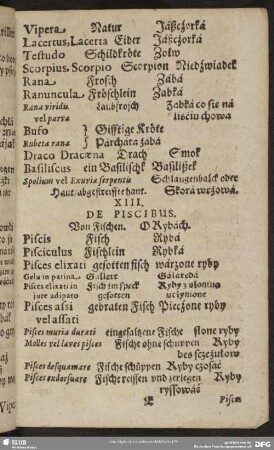 Vipera Natur Jáßczorká
Lacertus, Lacerta Eider Jáßczorká
Testudo Schildkröte Zolw
Scorpius, Scorpio Scorpion Niedźwiadek
Rana Frosch Zábá
Ranuncula Fröschlein Zabká
Rana viridis Laubfrosch Zabká co sie ná
vel parva liściu chowa
Bufo } Gifftige Kröte
Rubeta rana } Párcháta żábá
Draco Dracæna Trach Smok
Basiliscus ein Basilischk Basilißek
Spolium vel Exuvia serpentis Schlangenbalck oder
Haut/abgestreiffte haut. Skorá wężowa.
XIII.
DE PISCIBUS.
Von Fischen. O Rybách.
Piscis Fisch Rybá
Pisciculus Fischlein Rybká
Pisces elixati gesotten fisch wárzone ryby
Gelu in patina Gallert Gálaretá
Pisces elixati in Fisch im speck Ryby z słoniną
jure adipato gesotten uczynione
Pisces assi gebraten Fisch Pieczone ryby
vel assati
Pisces muria durati eingesaltzene Fische słone ryby
Molles vel læves pisces Fische ohne schuppen Ryby
bes sczeżulow
Pisces desquamare Fische schüppen Ryby czosáć
Pisces exdorsuare Fische reissen und zerlegen Ryby
ryssowáć
Pisces
SLUB